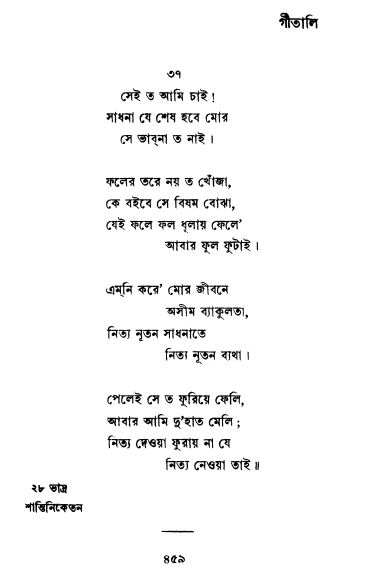 গীতালি
৩৭
সেই ত আমি চাই!
সাধনা যে শেষ হবে মোর
সে ভাব্‌না ত নাই।
ফলের তরে নয় ত খোঁজা,
কে বইবে সে বিষম বোঝা,
যেই ফলে ফল ধূলায় ফেলে'
আবার ফুল ফুটাই।
এম্‌নি করে' মোর জীবনে
অসীম ব্যাকুলতা,
নিত্য নূতন সাধনাতে
নিত্য নূতন ব্যথা।
পেলেই সে ত ফুরিয়ে ফেলি,
আবার আমি দু'হাত মেলি;
নিত্য দেওয়া ফুরায় না যে
নিত্য নেওয়া তাই॥
২৮ ভাদ্র
শান্তিনিকেতন
৪৫৯